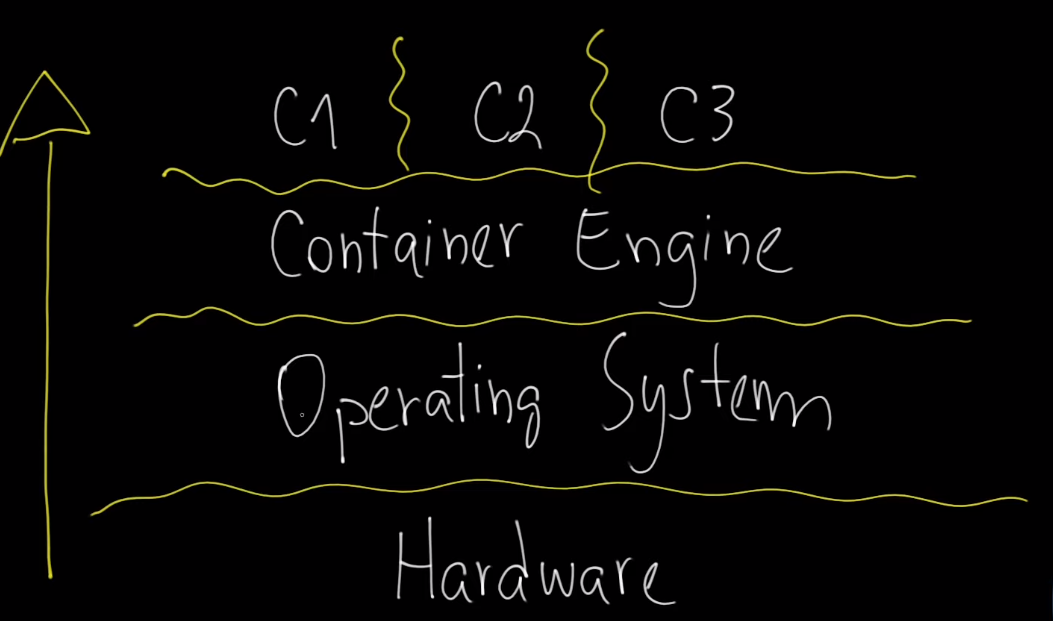 C1 C2 C3
Container Engine
Operating System
Hardware